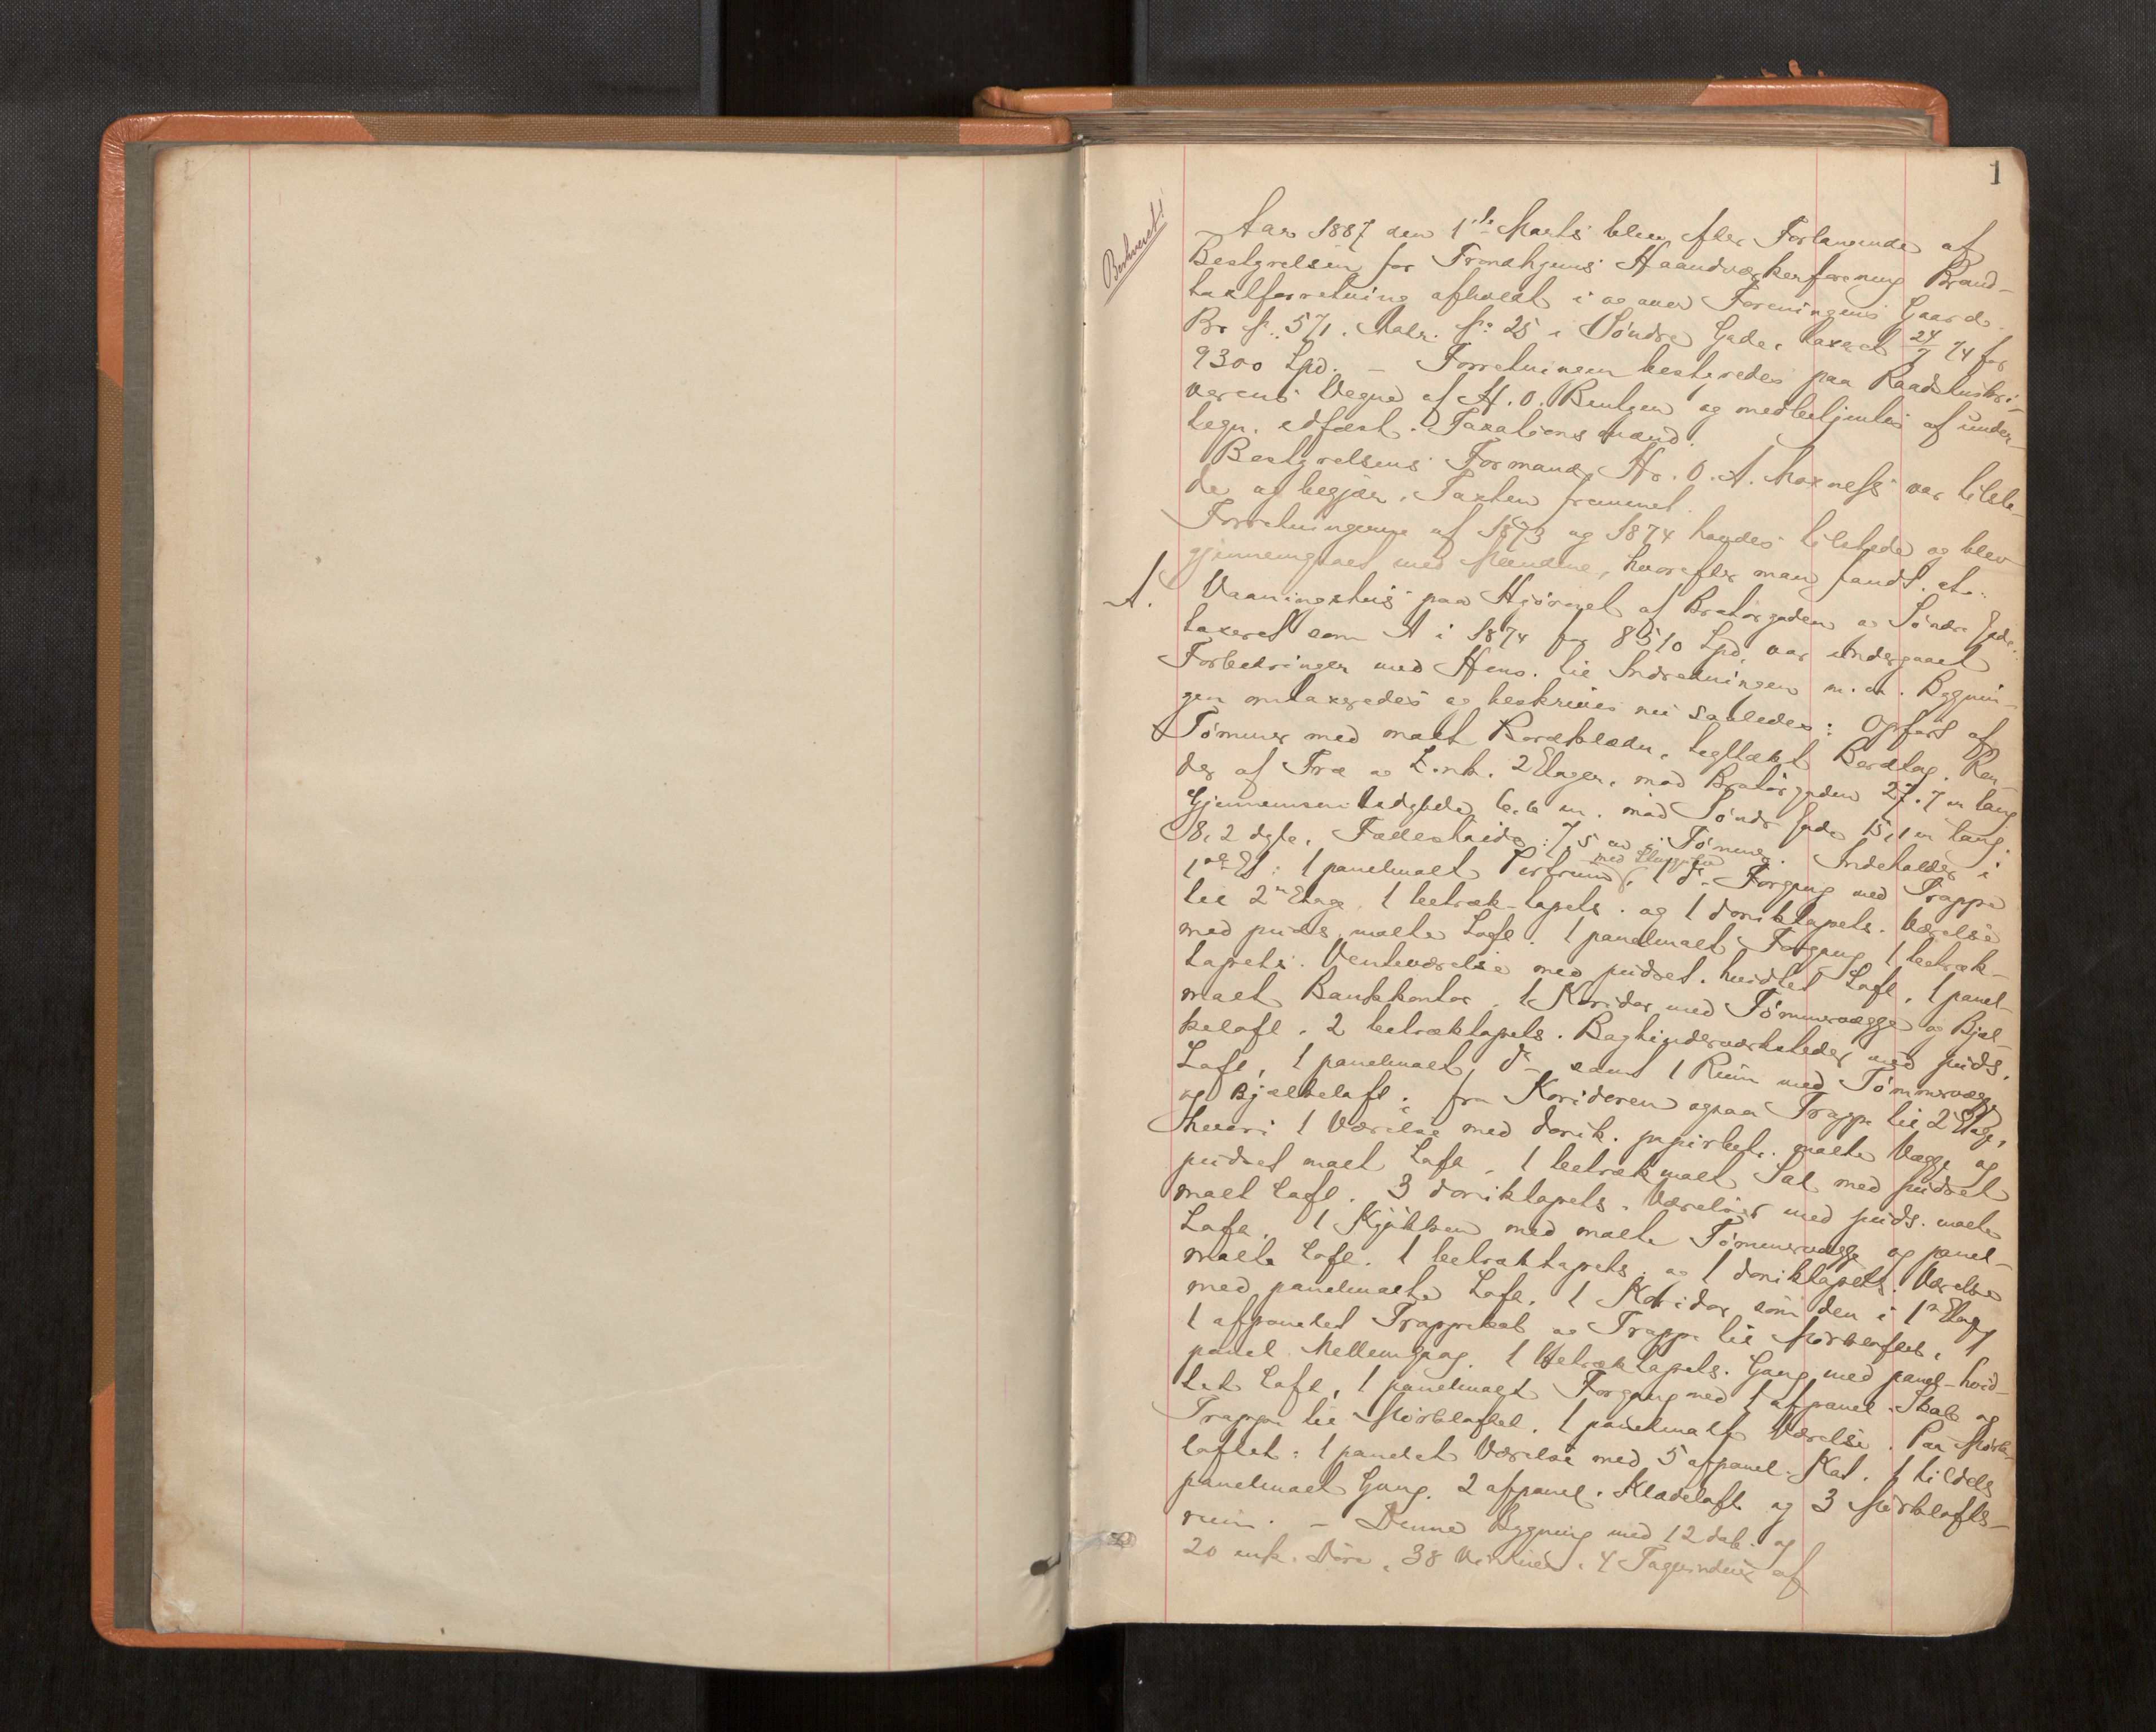 1
Beskrevet!
Aar 1887 den 1ste Marts blev efter Forlangende af
Bestyrelsen for Trondhjems Haandværkerforening Brand-
taxtforretning afholdt i og over Foreningens Gaard.
Br № 571. Matr. № 25 i Söndre Gade, taxeret 24/7 74 for
9300 Spd. – Forretningen bestyredes paa Raadstuskri-
verens Vegne af H. O. Bentzen og medbetjentes af under-
tegn. edfæst. Taxationsmænd.
Bestyrelsens Formand Hr. O. A. Moxness var tilste-
de og begjær. Taxten fremmet.
Forretningerne af 1873 og 1874 havdes tilstede og blev
gjennemgaaet med Mændene, hvorefter man fandt, at:
A. Vaaningshus paa Hjörnet af Bratörgaden og Söndre Gade.
taxeret som A i 1874 for 8510 Spd. var undergaaet
Forbedringer med Hens. til Indredningen m. m. Bygnin-
gen omtaxeredes og beskrives nu saaledes: Opfört af
Tömmer med malt Bordklædn., tegltækt Bordtag. Ren-
der af Træ og Zink. 2 Etager, mod Bratörgaden 27.7 m lang
Gjennemsnitsdybde 6.6 m. mod Söndr Gade 15,1 m lang.
8,2 dyb. Fælleshöide: 7,5 m i Tömmer. Indeholder i
1ste Et: 1 panelmalt Portrum, 1 do Forgang med Trappe
til 2n Etage, 1 betræk-tapets. og 1 doriktapets. Værelse
med puds. malte Loft. 1 panelmalt Forgang, 1 betræk-
tapets. Venteværelse med pudset. hvidtet Loft, 1 panel-
malt Bankkontor, 1 Koridor med Tömmervægge og Bjæl-
keloft, 2 betræktapets. Bogbinderværksteder med puds.
Loft, 1 panelmalt do samt 1 Rum med Tömmervægge
og Bjælkeloft; fra Koridoren ogsaa Trappe til 2 Etage,
hvori 1 Værelse med dorik. papirbetr. malte Vægge og
pudset malt Loft, 1 betrækmalt Sal med pudset
malt Loft. 3 doriktapets. Værelser med puds. malte
Loft, 1 Kjökken med malte Tömmervægge og panel-
malte Loft. 1 betræktapets. og 1 doriktapets. Værelse
med panelmalte Loft, 1 Koridor som den i 1n Etage
1 afpanelet Trapperum og Trappe til Mörkloftet, 1
panel. Mellemgang. 1 Betræktapets. Gang med panel-hvid-
tet Loft, 1 panelmalt Forgang med 1 afpanel. Skab og
Trappe til Mörkloftet. 1 panelmalt Værelse. Paa Mörk-
loftet: 1 panelet Værelse med 5 afpanel. Kot. 1 tildels
panelmalt Gang. 2 afpanel. Klædeloft og 3 Mörklofts-
rum. – Denne Bygning med 12 dob. og
20 enk. Döre, 38 Vinduer, 4 Tagvinduer af